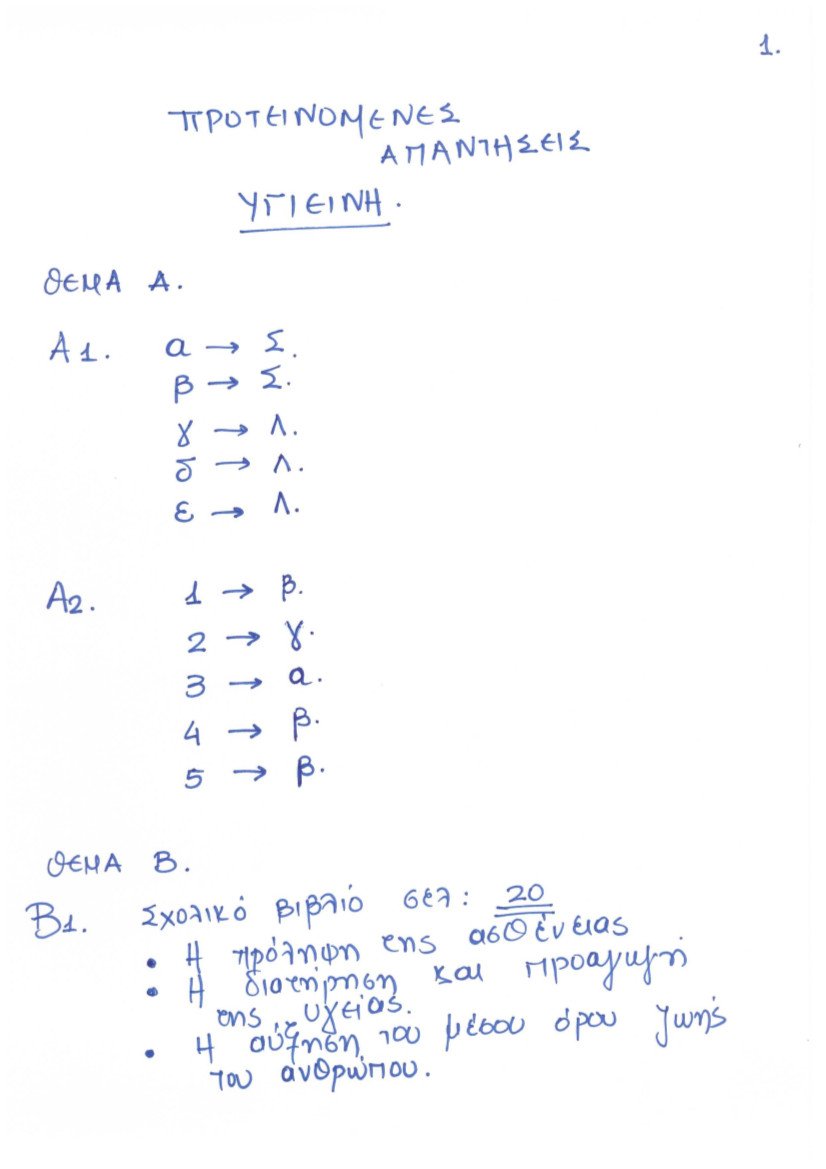 1.
ΠΡΟΤΕΙΝΟΜΕΝΕΣ
ΑΠΑΝΤΗΣΕΙΣ
ΥΓΙΕΙΝΗ.
ΘΕΜΑ Α.
Α1. α → Σ.
β → Σ.
γ → Λ.
δ → Λ.
ε → Λ.
Α2. 1 → β.
2 → γ.
3 → α.
4 → β.
5 → β.
ΘΕΜΑ Β.
Β1. Σχολικό βιβλίο σελ: 20
• Η πρόληψη της ασθένειας
• Η διατήρηση και προαγωγή
της υγείας.
• Η αύξηση του μέσου όρου ζωής
του ανθρώπου.